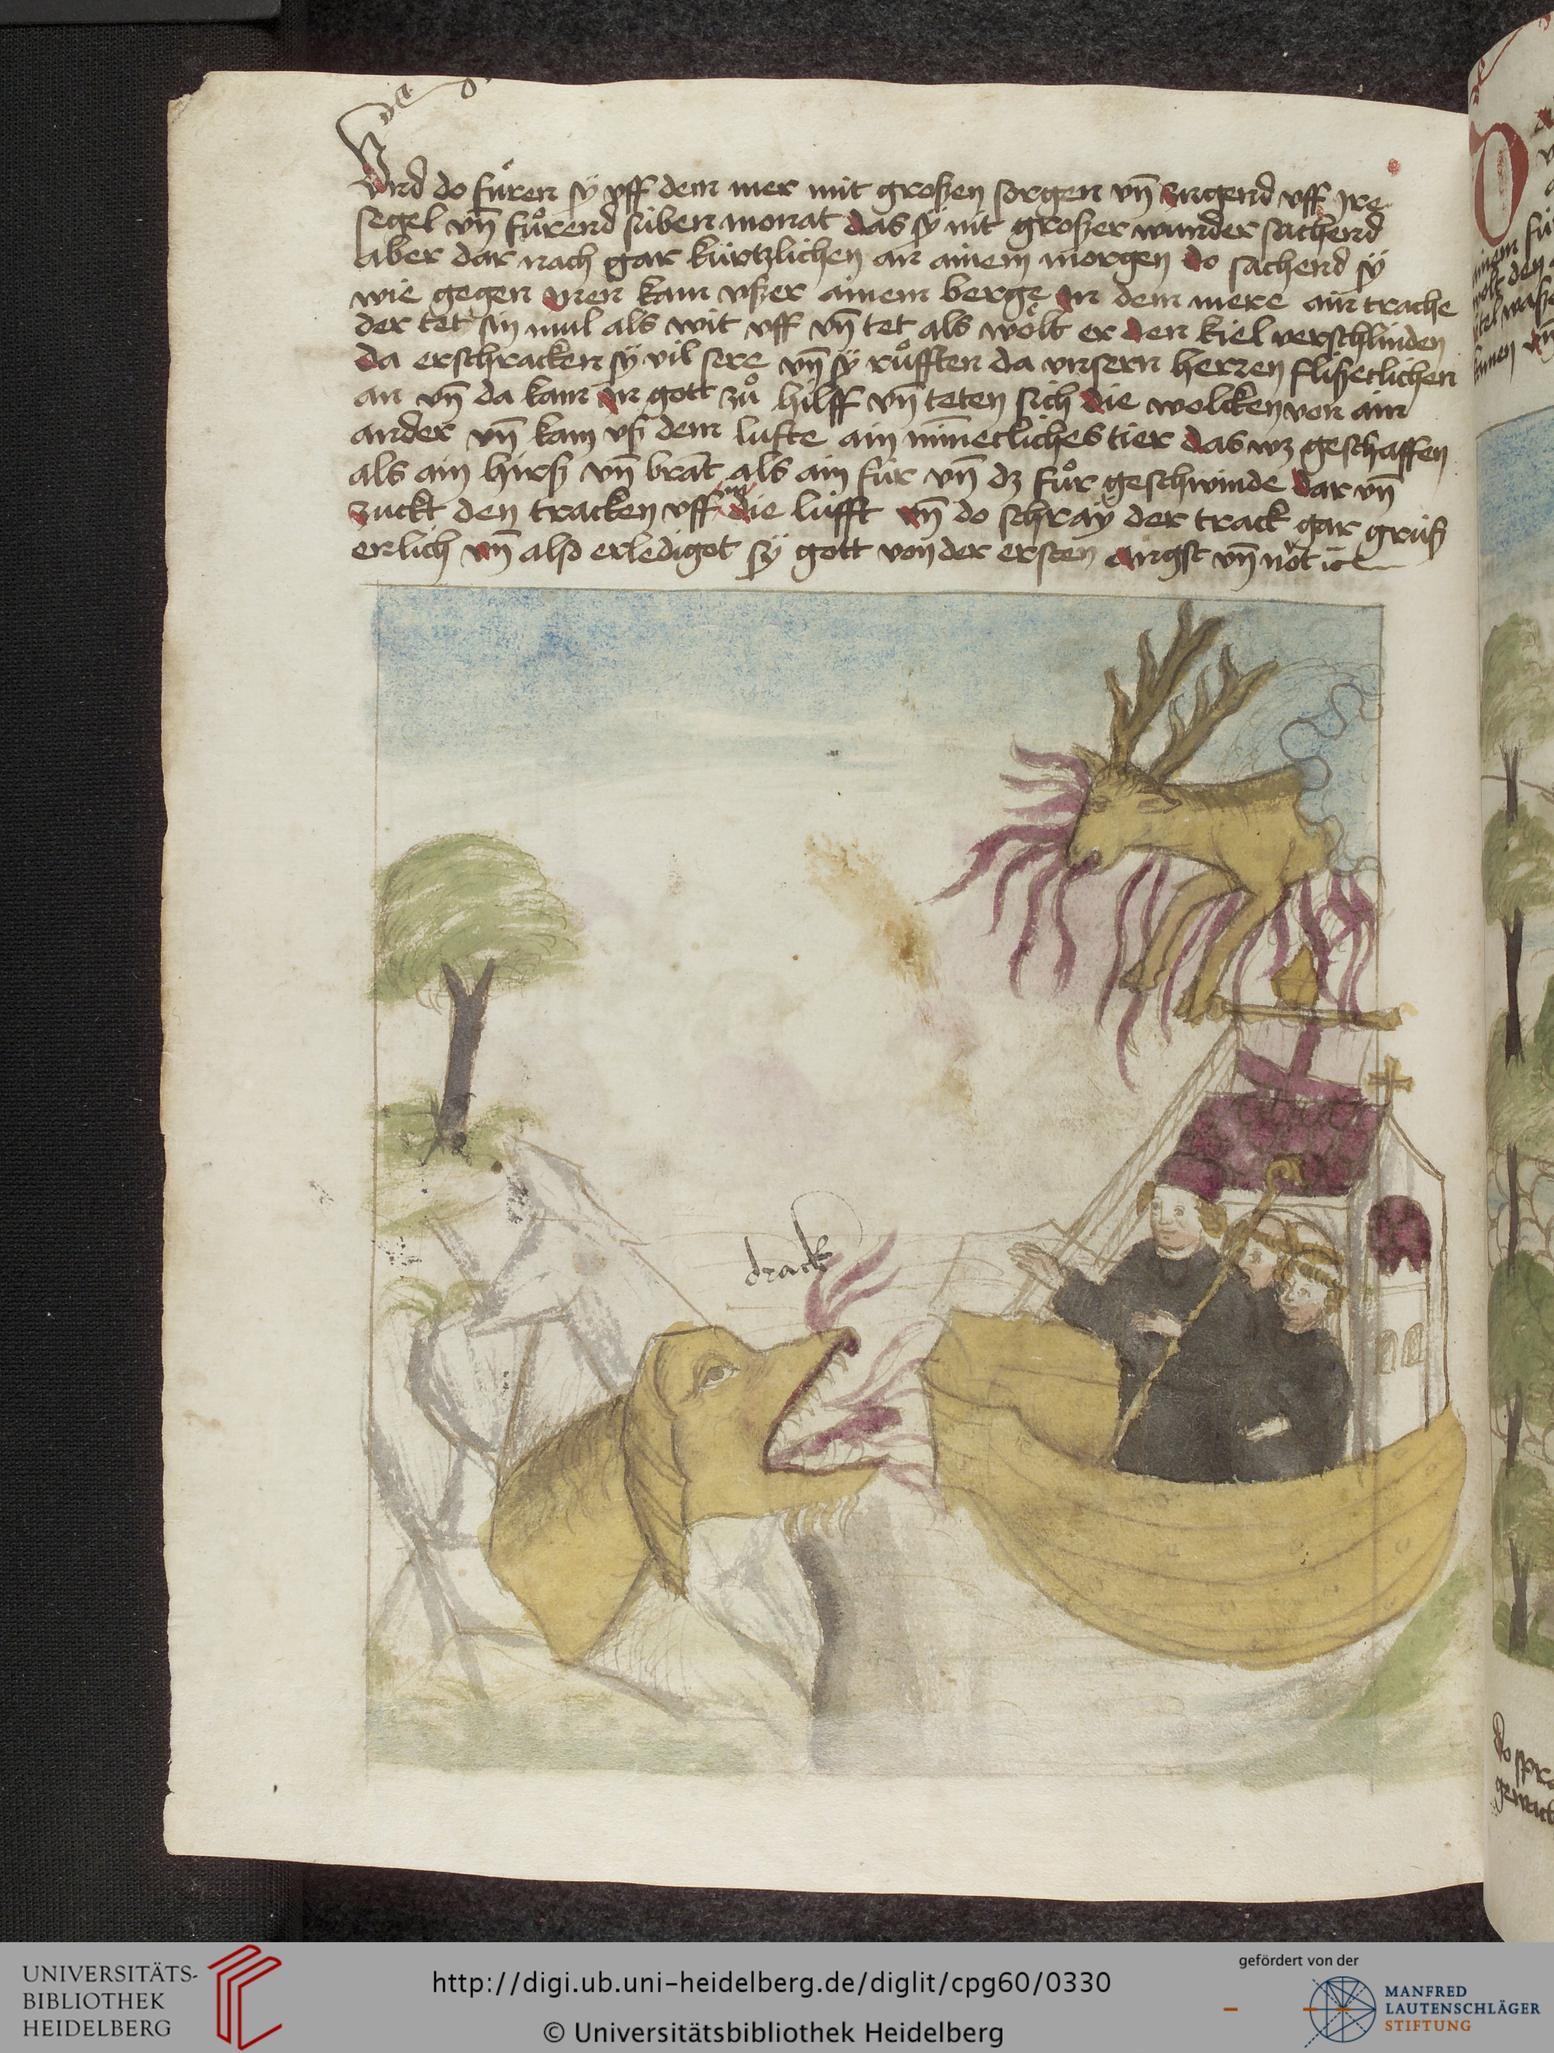 Vnd do fůren sÿ vff dem mer mit großen sorgen vn̄ zugend vff jre
segel vn̄ fůrend siben monat das sÿ nit großer wunder sachend
aber dar nach gar kürtzlichen an ainem morgen do sachend sÿ
wie gegen jnen kam vßer ainem berge jn dem mere ain trache
der tet sin mul als wit vff vn̄ tet als wölt er den kiel verschlinden
da erschracken sÿ vil sere vn̄ sÿ růfften da vnsern herren flißeclichen
an vn̄ da kam jn gott zů hilff vn̄ teten sich die wolcken von ain
ander vn̄ kam vß dem lufte ain das wz geschaffen
als ain hirß vn̄ brāt als ain für vn̄ dz fůr geschwinde dar vn̄
zuckt den tracken vff jn die lüfft vn̄ do schray der track gar grüß
enlich vn̄ also erledigot sÿ gott von der ersten angst vn̄ nöt
drack
UNIVERSITÄTS-
BIBLIOTHEK
HEIDELBERG
http://digi.ub.uni-heidelberg.de/diglit/cpg60/0330
© Universitätsbibliothek Heidelberg
gefördert von der
MANFRED
LAUTENSCHLÄGER
STIFTUNG